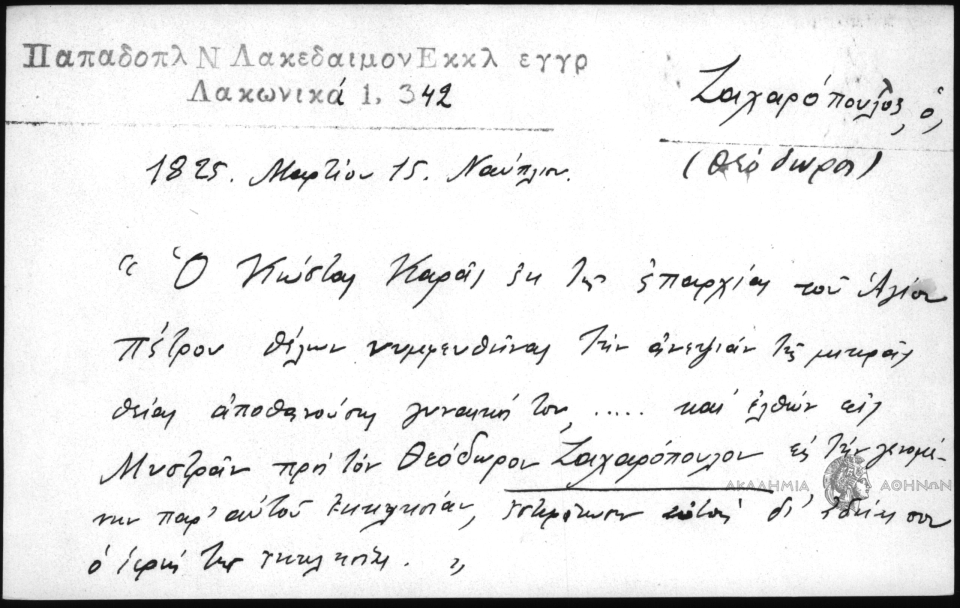 Παπαδοπλ Ν Λακεδαιμον Εκκλ εγγρ
Λακωνικά 1, 342
Ζαχαρόπουλος, ὁ,
(Θεόδωρος)
1825. Μαρτίου 15. Ναύπλιον.
“ Ὁ Κώστας Καρᾶς ἐκ τῆς ἐπαρχίας τοῦ Ἁγίου
Πέτρου θέλων νυμφευθῆναι τὴν ἀνεψιὰν τῆς μικρᾶς
θείας ἀποθανούσης γυναικὸς του, ..... καὶ ἐλθὼν εἰς
Μυστρᾶν πρὸς τὸν Θεόδωρον Ζαχαρόπουλον εἰς τὴν γενομέ-
νην παρ' αὐτοῦ ἐκκλησίαν, ἐστεφάνωσεν αὐτοὺς δι'
ὁ ἱερεὺς τῆς ἐκκλησίας. „
ΑΚΑΔΗΜΙΑ ΑΘΗΝΩΝ